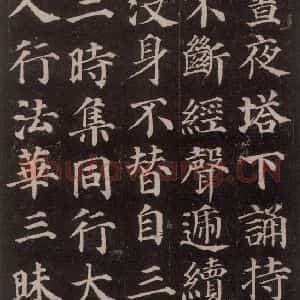 晝夜塔下誦持
不斷經聲遞續
没身不替自三
二時集同行大
人行法華三昧
shufawang.CN